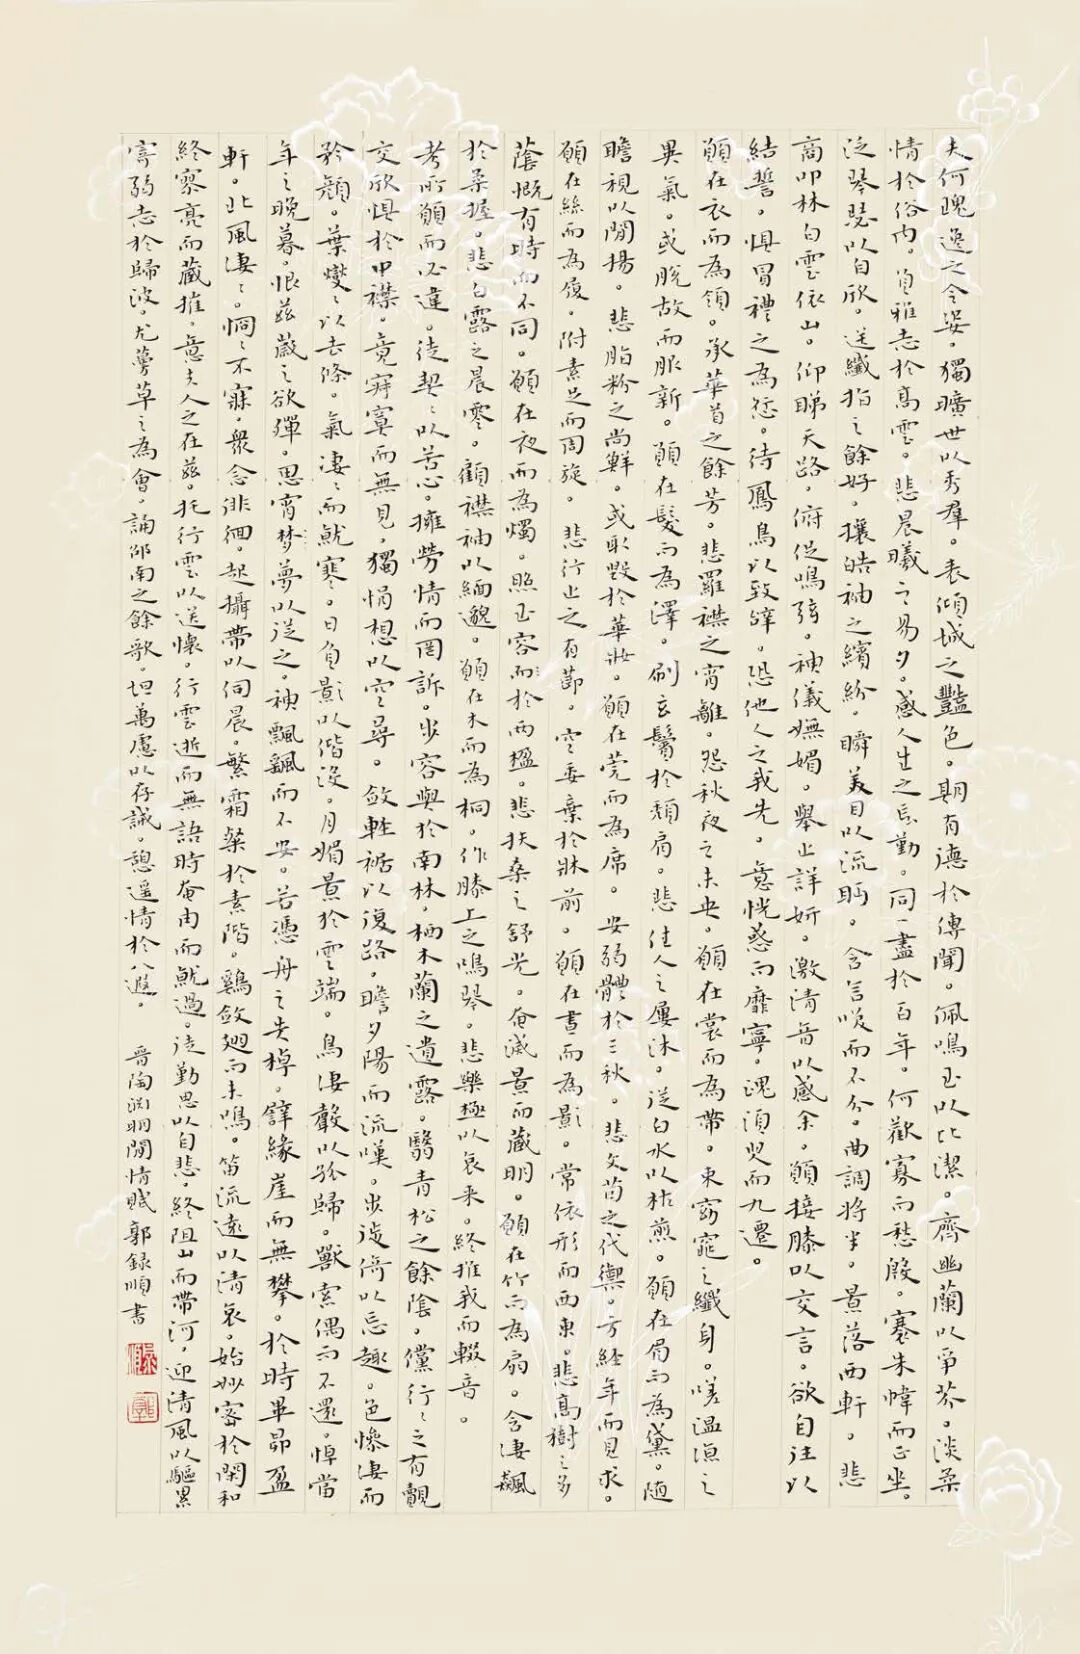 夫何瓌逸之令姿。獨曠世以秀羣。表傾城之豔色。期有德於傳聞。佩鳴玉以比潔。齊幽蘭以爭芬。淡柔
情於俗內。負雅志於高雲。悲晨曦之易夕。感人生之長勤。同一盡於百年。何歡寡而愁殷。褰朱幃而正坐。
泛琴瑟以自欣。送纖指之餘好。攘皓袖之繽紛。瞬美目以流眄。含言笑而不分。曲調將半。景落西軒。悲
商叩林白雲依山。仰睇天路。俯促鳴弦。神儀嫵媚。舉止詳妍。激清音以感余。願接膝以交言。欲自往以
結誓。惧冒禮之為愆。待鳳鳥以致辭。恐他人之我先。意恍惑而靡寧。魂須臾而九遷。
願在衣而為領。承華首之餘芳。悲羅襟之宵離。怨秋夜之未央。願在裳而為帶。束窈窕之纖身。嗟溫涼之
異氣。或脫故而服新。願在髮而為澤。刷玄鬢於頹肩。悲佳人之屢沐。從白水以枯煎。願在眉而為黛。隨
瞻視以閒揚。悲脂粉之尚鮮。或取毀於華妝。願在莞而為席。安弱體於三秋。悲文茵之代禦。方經年而見求。
願在絲而為履。附素足而周旋。悲行止之有節。空委棄於牀前。願在晝而為影。常依形而西東。悲高樹之多
蔭慨有時而不同。願在夜而為燭。照玉容而於兩楹。悲扶桑之舒光。奄滅景而藏明。願在竹而為扇。含淒飆
於柔握。悲白露之晨零。顧襟袖以緬邈。願在木而為桐。作膝上之鳴琴。悲樂極以哀來。終推我而輟音。
考所願而必違。徒契〻以苦心。擁勞情而罔訴。步容與於南林。栖木蘭之遺露。翳青松之餘陰。儻行〻之有覿
交欣惧於中襟。竟寂寞而無見。獨悁想以空尋。斂輕裾以復路。瞻夕陽而流嘆。步徙倚以忘趣。色慘淒而
矜顏。葉燮〻以去條。氣淒〻而就寒。日負影以偕沒。月媚景於雲端。鳥淒聲以孤歸。獸索偶而不還。悼當
年之晚暮。恨茲歲之欲殫。思宵夢以從之。神飄飄而不安。若憑舟之失棹。譬緣崖而無攀。於時畢昴盈
軒。北風淒〻。恫〻不寐。衆念徘徊。起攝帶以伺晨。繁霜粲於素階。雞斂翅而未鳴。笛流遠以清哀。始妙密於閑和
終寥亮而藏摧。意夫人之在茲。托行雲以送懷。行雲逝而無語時奄冉而就過。徒勤思以自悲。終阻山而帶河。迎清風以驅累
寄弱志於歸波。尤蔓草之為會。誦邵南之餘歌。坦萬慮以存誠。憩遥情於八遐。 晉陶淵明閒情賦郭錄順書